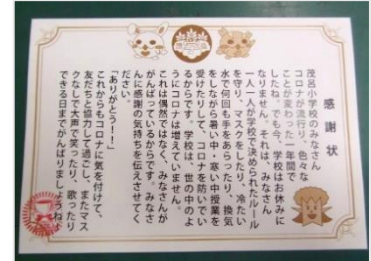 感謝状
茂呂小学校のみなさん
コロナが流行り、色々な
ことが変わった一年間で
したね。でも今、学校はお休みに
なりません。それは、みなさん
一人一人が学校で決められたルール
を守り、マスクをしたり、冷たい
水で何回も手をあらったり、換気
をしながら暑い中・寒い中授業を
受けたりして、コロナを防いでい
るからです。学校は、世の中のよ
うにコロナは増えていません。
これは偶然ではなく、みなさんが
がんばっているからです。みなさ
んに感謝の気持ちを伝えさせてく
ださい。
「ありがとう！！」
これからもコロナに気を付けて、
友だちと協力して過ごし、またマス
クなしで大声で笑ったり、歌ったり
できる日までがんばりましょうね♪